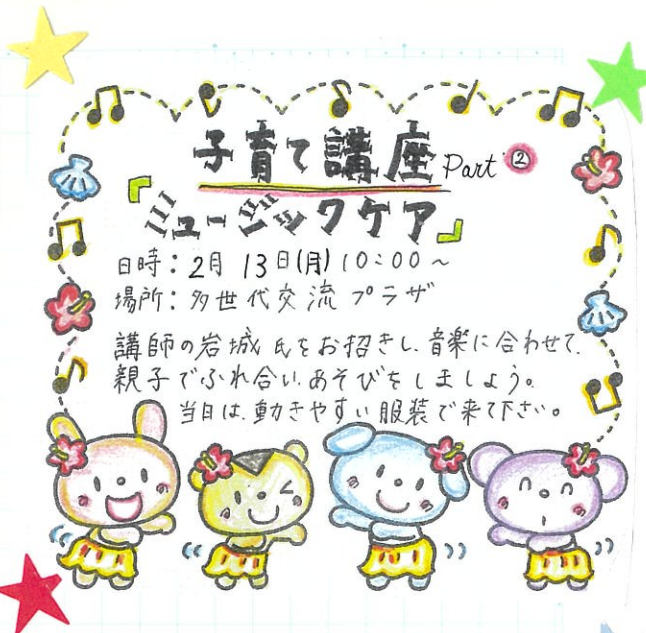 子育て講座 Part②
『ミュージックケア』
日時：2月13日(月)10:00～
場所：多世代交流プラザ
講師の岩城氏をお招きし、音楽に合わせて、
親子でふれ合い、あそびをしましょう。
当日は、動きやすい服装で来て下さい。